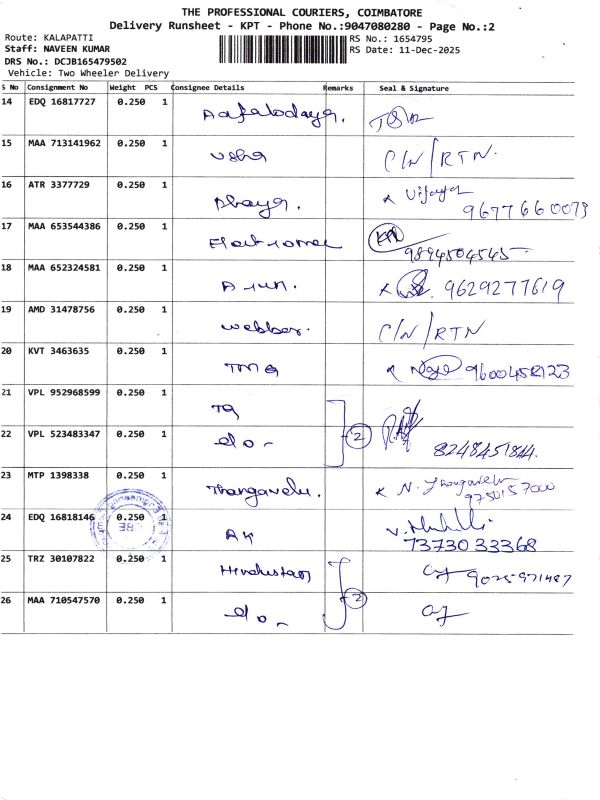 THE PROFESSIONAL COURIERS, COIMBATORE
Delivery Runsheet - KPT - Phone No.:9047080280 - Page No.:2
Route: KALAPATTI
RS No.: 1654795
Staff: NAVEEN KUMAR
RS Date: 11-Dec-2025
DRS No.: DCJB165479502
Vehicle: Two Wheeler Delivery
S No Consignment No Weight PCS Consignee Details Remarks Seal & Signature
14 EDQ 16817727 0.250 1
15 MAA 713141962 0.250 1 Usha C/N/RTN.
16 ATR 3377729 0.250 1 x Vijaya
9677660073
17 MAA 653544386 0.250 1
9894504545
18 MAA 652324581 0.250 1 Arun. x 9629277619
19 AMD 31478756 0.250 1 webber. C/N/RTN
20 KVT 3463635 0.250 1 TMG x 9600458123
21 VPL 952968599 0.250 1 TG
22 VPL 523483347 0.250 1 do - 2
23 MTP 1398338 0.250 1 Thangavelu. x N. Thangavelu
9750157000
24 EDQ 16818146 0.250 1 AK
7373033368
25 TRZ 30107822 0.250 1 Hindustan 9025971487
26 MAA 710547570 0.250 1 do - 2